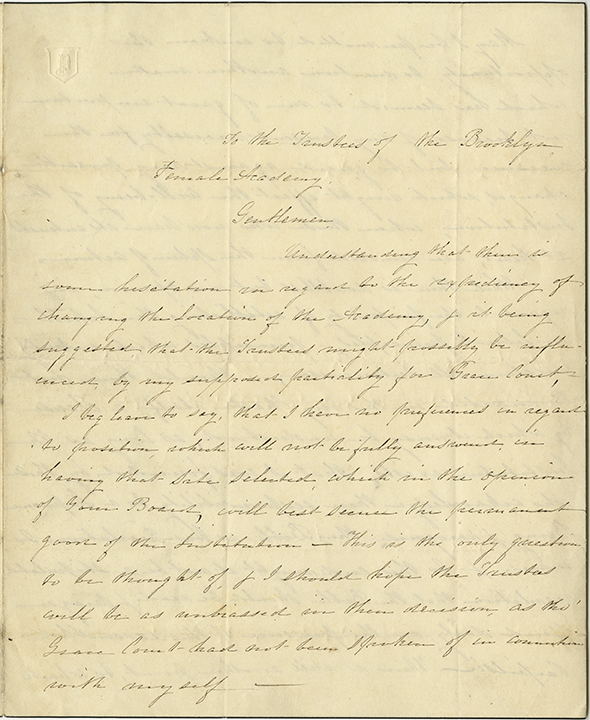 To the Trustees of the Brooklyn
Female Academy.
Gentlemen,
Understanding that there is
some hesitation in regard to the expediency of
changing the Location of the Academy, & it being
suggested that the Trustees might possibly be influ-
enced by my supposed partiality for Grace Court,
I beg leave to say, that I have no preferences in regard
to position which will not be fully answered, in
having that Site selected, which in the opinion
of Your Board, will best secure the permanent
good of the Institution — This is the only question
to be thought of, & I should hope the Trustees
will be as unbiassed in their decision, as tho'
Grace Court had not been spoken of in connection
with myself —